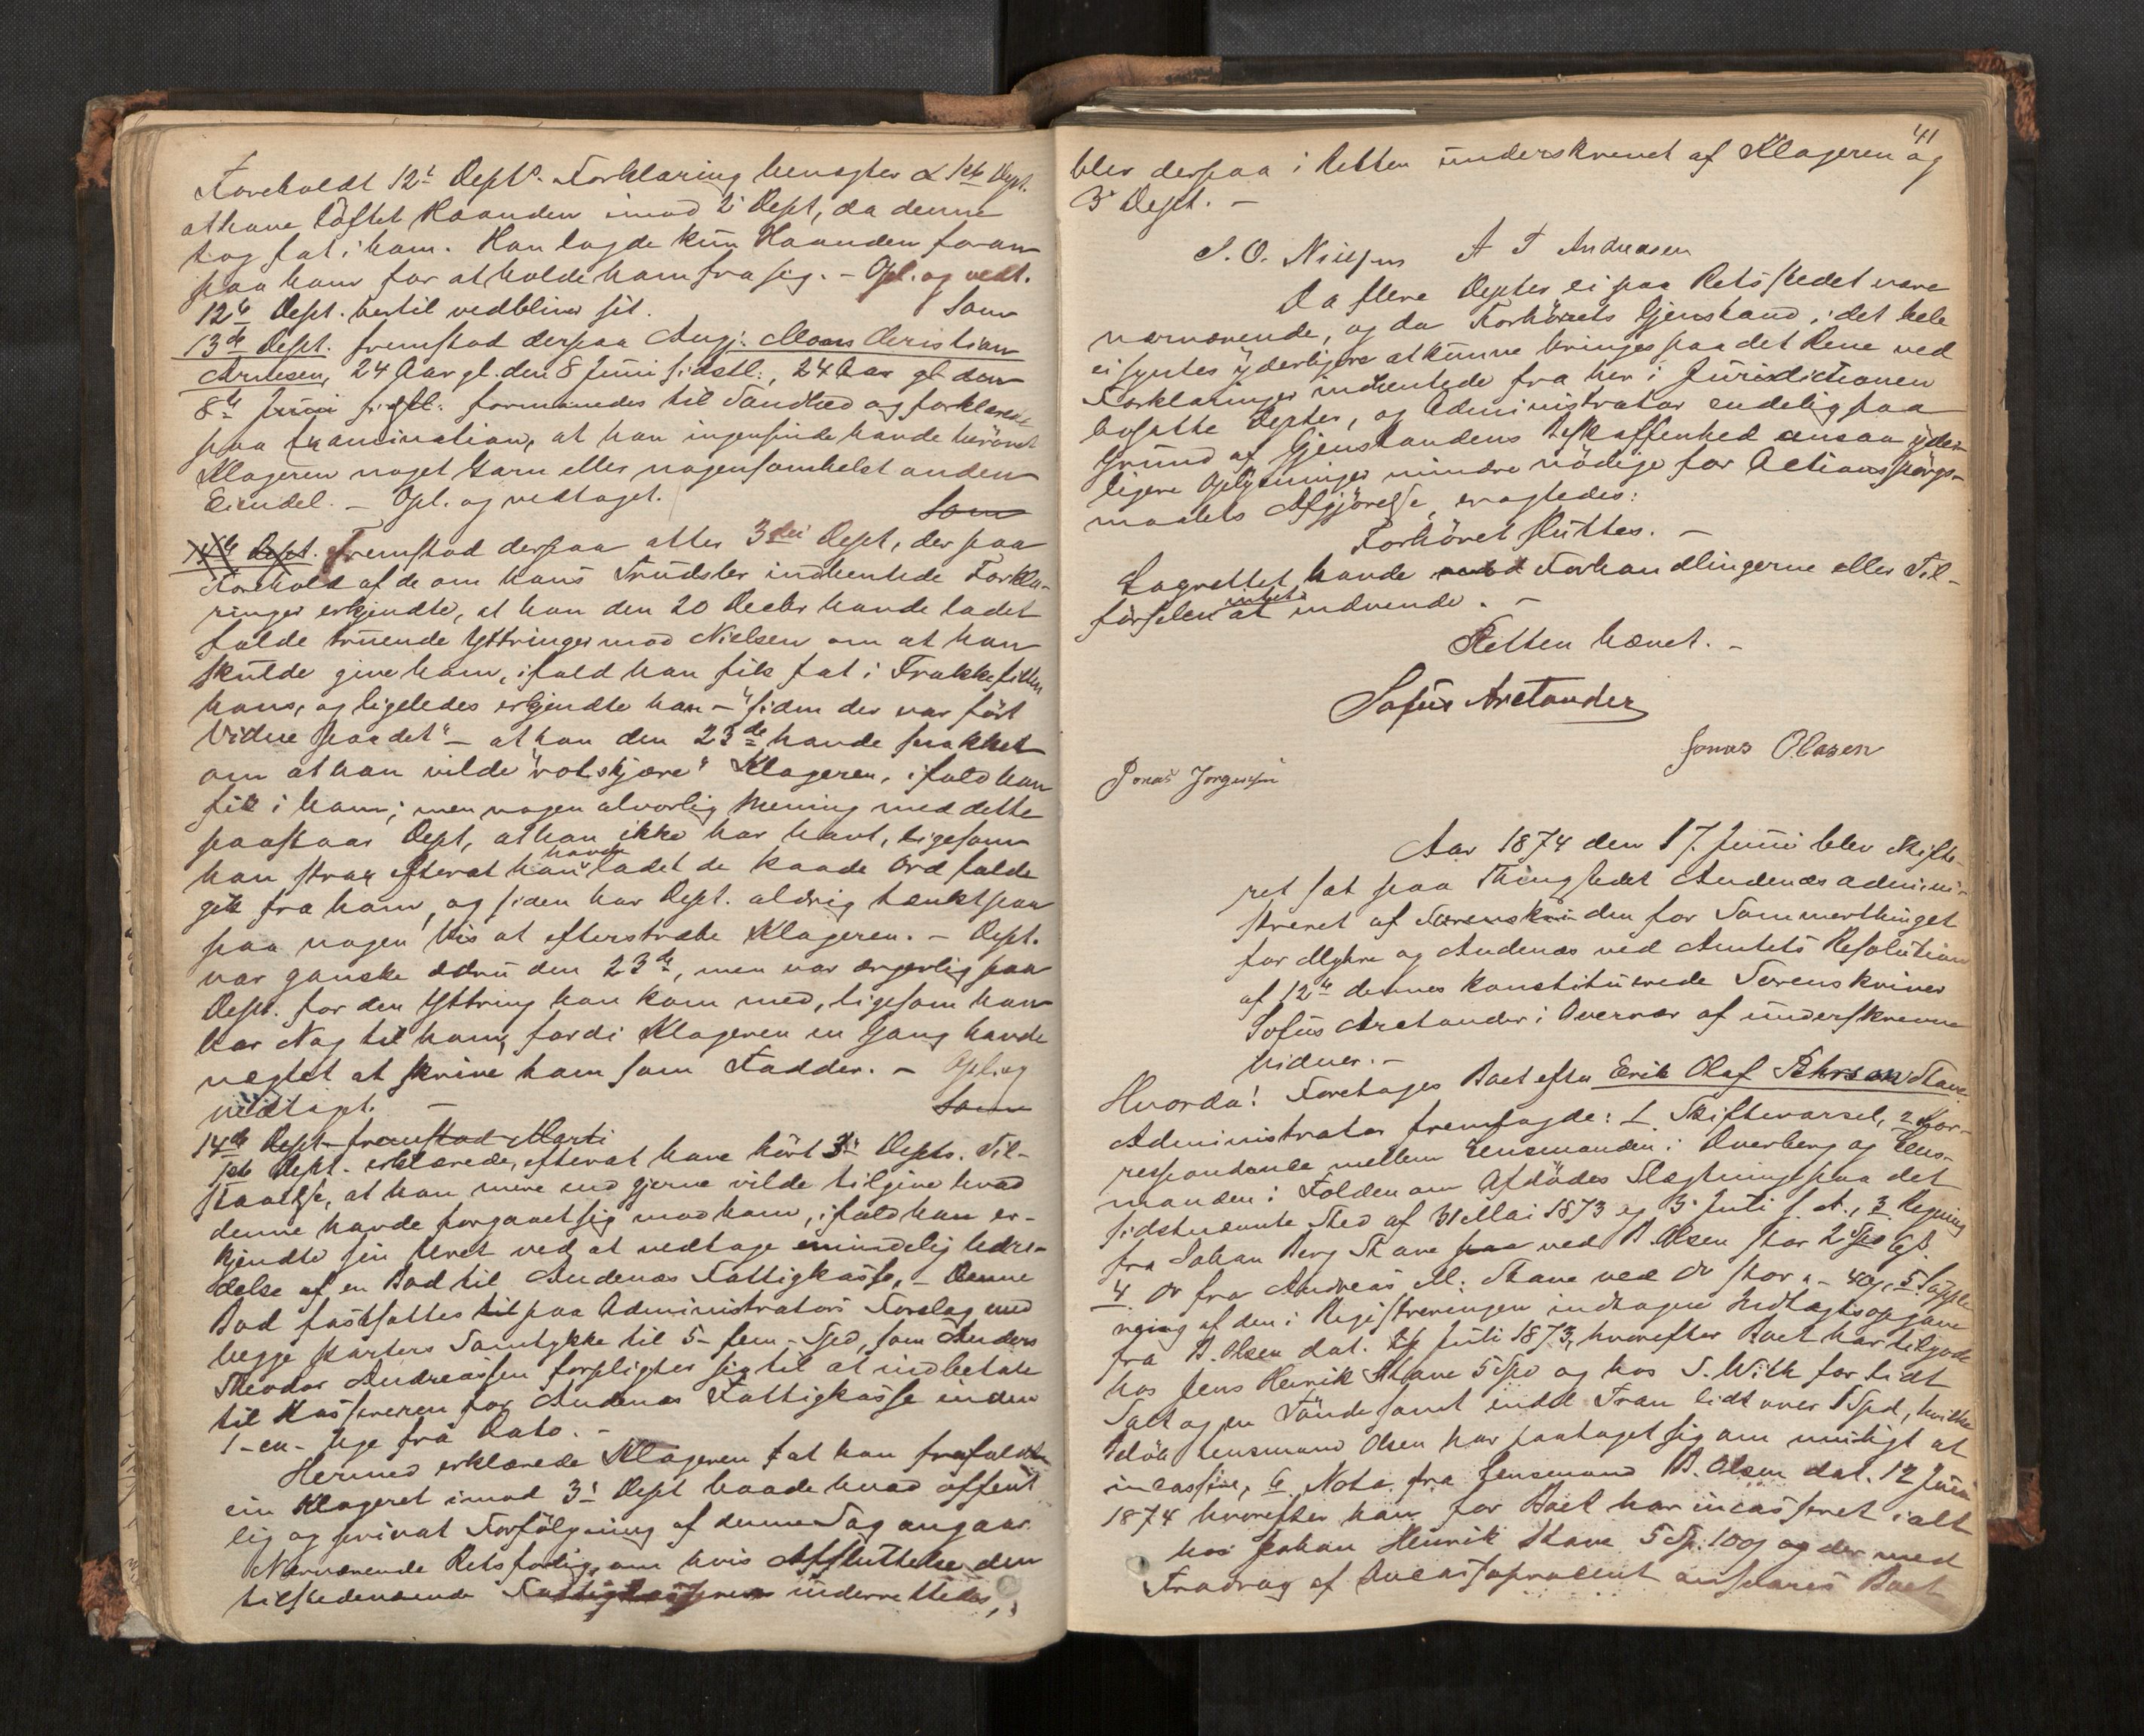 Foreholdt 12t Depts. Forklaring benegter 1ste Dept.
at have løftet Haanden imod 2' Dept, da denne
tog fat i ham. Han lagde kun Haanden foran
paa ham for at holde ham fra sig. - Opl. og vedt.
12te Dept. hertil vedbliver sit. Som
13de Dept. fremstod derpaa Angj: Moans Christian
Arntesen, 24 Aar gl. den 8 Juni sidstl:, 24 Aar gl den
8de Juni sidstl: formanedes til Sandhed og forklarede
paa Examination, at han ingensinde havde berøvet
Klageren noget Garn eller nogensomhelst anden
Eiendel. - Opl. og vedtaget. Som
14de Dept. Fremstod derpaa atter 3die Dept, der paa
Forehold af de om hans Trudsler indhentede Forkla-
ringer erkjendte, at han den 20 Decbr havde ladet
falde truende Yttringer mod Nielsen om at han
skulde give ham, ifald han fik fat i Frakkefitten
hans, og ligeledes erkjendte han - "siden der var ført
Vidne paa det" - at han den 23de havde snakket
om at han vilde "rotskjære" Klageren, ifald han
fik i ham; men nogen alvorlig Mening med dette
paastaar Dept, at han ikke har havt, ligesom
han strax efterat han havde ladet de kaade Ord falde
gik fra ham, og siden har Dept. aldrig tænkt paa
paa nogen Vis at efterstræbe Klageren. - Dept.
var ganske ædru den 23de, men var ærgerlig paa
Dept. for den Yttring han kom med, ligesom han
har Nag til ham, fordi Klageren en Gang havde
nægtet at skrive ham som Fadder. - Opl. og
vedtaget. - Som
14de Dept fremstod Marti
1ste Dept. erklærede, efterat have hørt 3die Depts. Til-
staaelse, at han mere end gjerne vilde tilgive hvad
denne havde forgaaet sig mod ham, ifald han er-
kjendte sin Uret ved at vedtage emindelig Udre-
delse af en Bod til Andenæs Fattigkasse, - Denne
Bod fastsattes til paa Administrators Forslag med
begge Parters Samtykke til 5 - fem - Spd, som Anders
Theodor Andreassen forpligter sig til at indbetale
til Kassereren for Andenæs Fattigkasse inden
1 - en - Uge fra Dato. -
Hermed erklærede Klageren at han frafaldt
sin Klageret imod 3' Dept baade hvad offent
lig og privat Forfølgning af denne Sag angaar.
Nærværende Retsforlig, om hvis Afsluttelse den
tilstedeværende Fattigkasserer underrettedes,
41
blev derpaa i Retten underskrevet af Klageren og
3' Dept. -
S. O. Nielsen A T Andreasen
Da flere Depter ei paa Retsstedet vare
nærværende, og da Forhørets Gjenstand i det hele
ei syntes yderligere at kunne bringes paa det Rene ved
Forklaringer indhentede fra her i Jurisdictionen
bosatte Depter, og Administrator endelig paa
Grund af Gjenstandens Beskaffenhed ansaa yder-
ligere Oplysninger mindre nødige for Actionsspørgs-
maalets Afgjørelse, eragtedes:
Forhøret sluttes. -
Lagrettet havde mod Forhandlingerne eller Til-
førselen intet at indvende. -
Retten hævet. -
Sofus Arctander
Jonas Olasen
Jonas Jørgensen
Aar 1874 den 17 Juni blev Skifte-
ret sat paa Thingstedet Andenæs admini-
streret af Sorenskri den for Sommerthinget
for Myhre og Andenæs ved Amtets Resolution
af 12te dennes konstituerede Sorenskriver
Sofus Arctander i Overvær af underskrevne
Vidner. -
Hvorda: Foretoges Boet efter Erik Olaf Pehrson Stave
Administrator fremlagde: 1. Skiftevarsel, 2 Kor-
respondance mellem Lensmanden i Dverberg og Lens-
manden i Folden om Afdødes Slægtninge paa det
sidstnævnte Sted af 31 Mai 1873 og 3' Juli s. A., 3 Regning
fra Johan Berg Stave paa ved B. Olsen stor 2 Spd 6 s.
4 Do fra Andreas M: Stave ved Do stor " - 40 s, 5 Supple
rering af den i Registreringen indtagne Indtægtsopgave
fra B. Olsen dat. 24 Juli 1873, hvorefter Boet har tilgode
hos Jens Henrik Stave 5 Spd og hos S. With for lidt
Salt og en Tønde samt endel Tran lidt over 1 Spd, hvilke
Beløb Lensmand Olsen har paataget sig om muligt at
incassere, 6 Nota fra Lensmand B. Olsen dat. 12 Juni
1874 hvorefter han for Boet har incasseret ialt
hos Johan Henrik Stave 5 Sp: 100 s og der med
Fradrag af Incassoprocent ansvares Boet